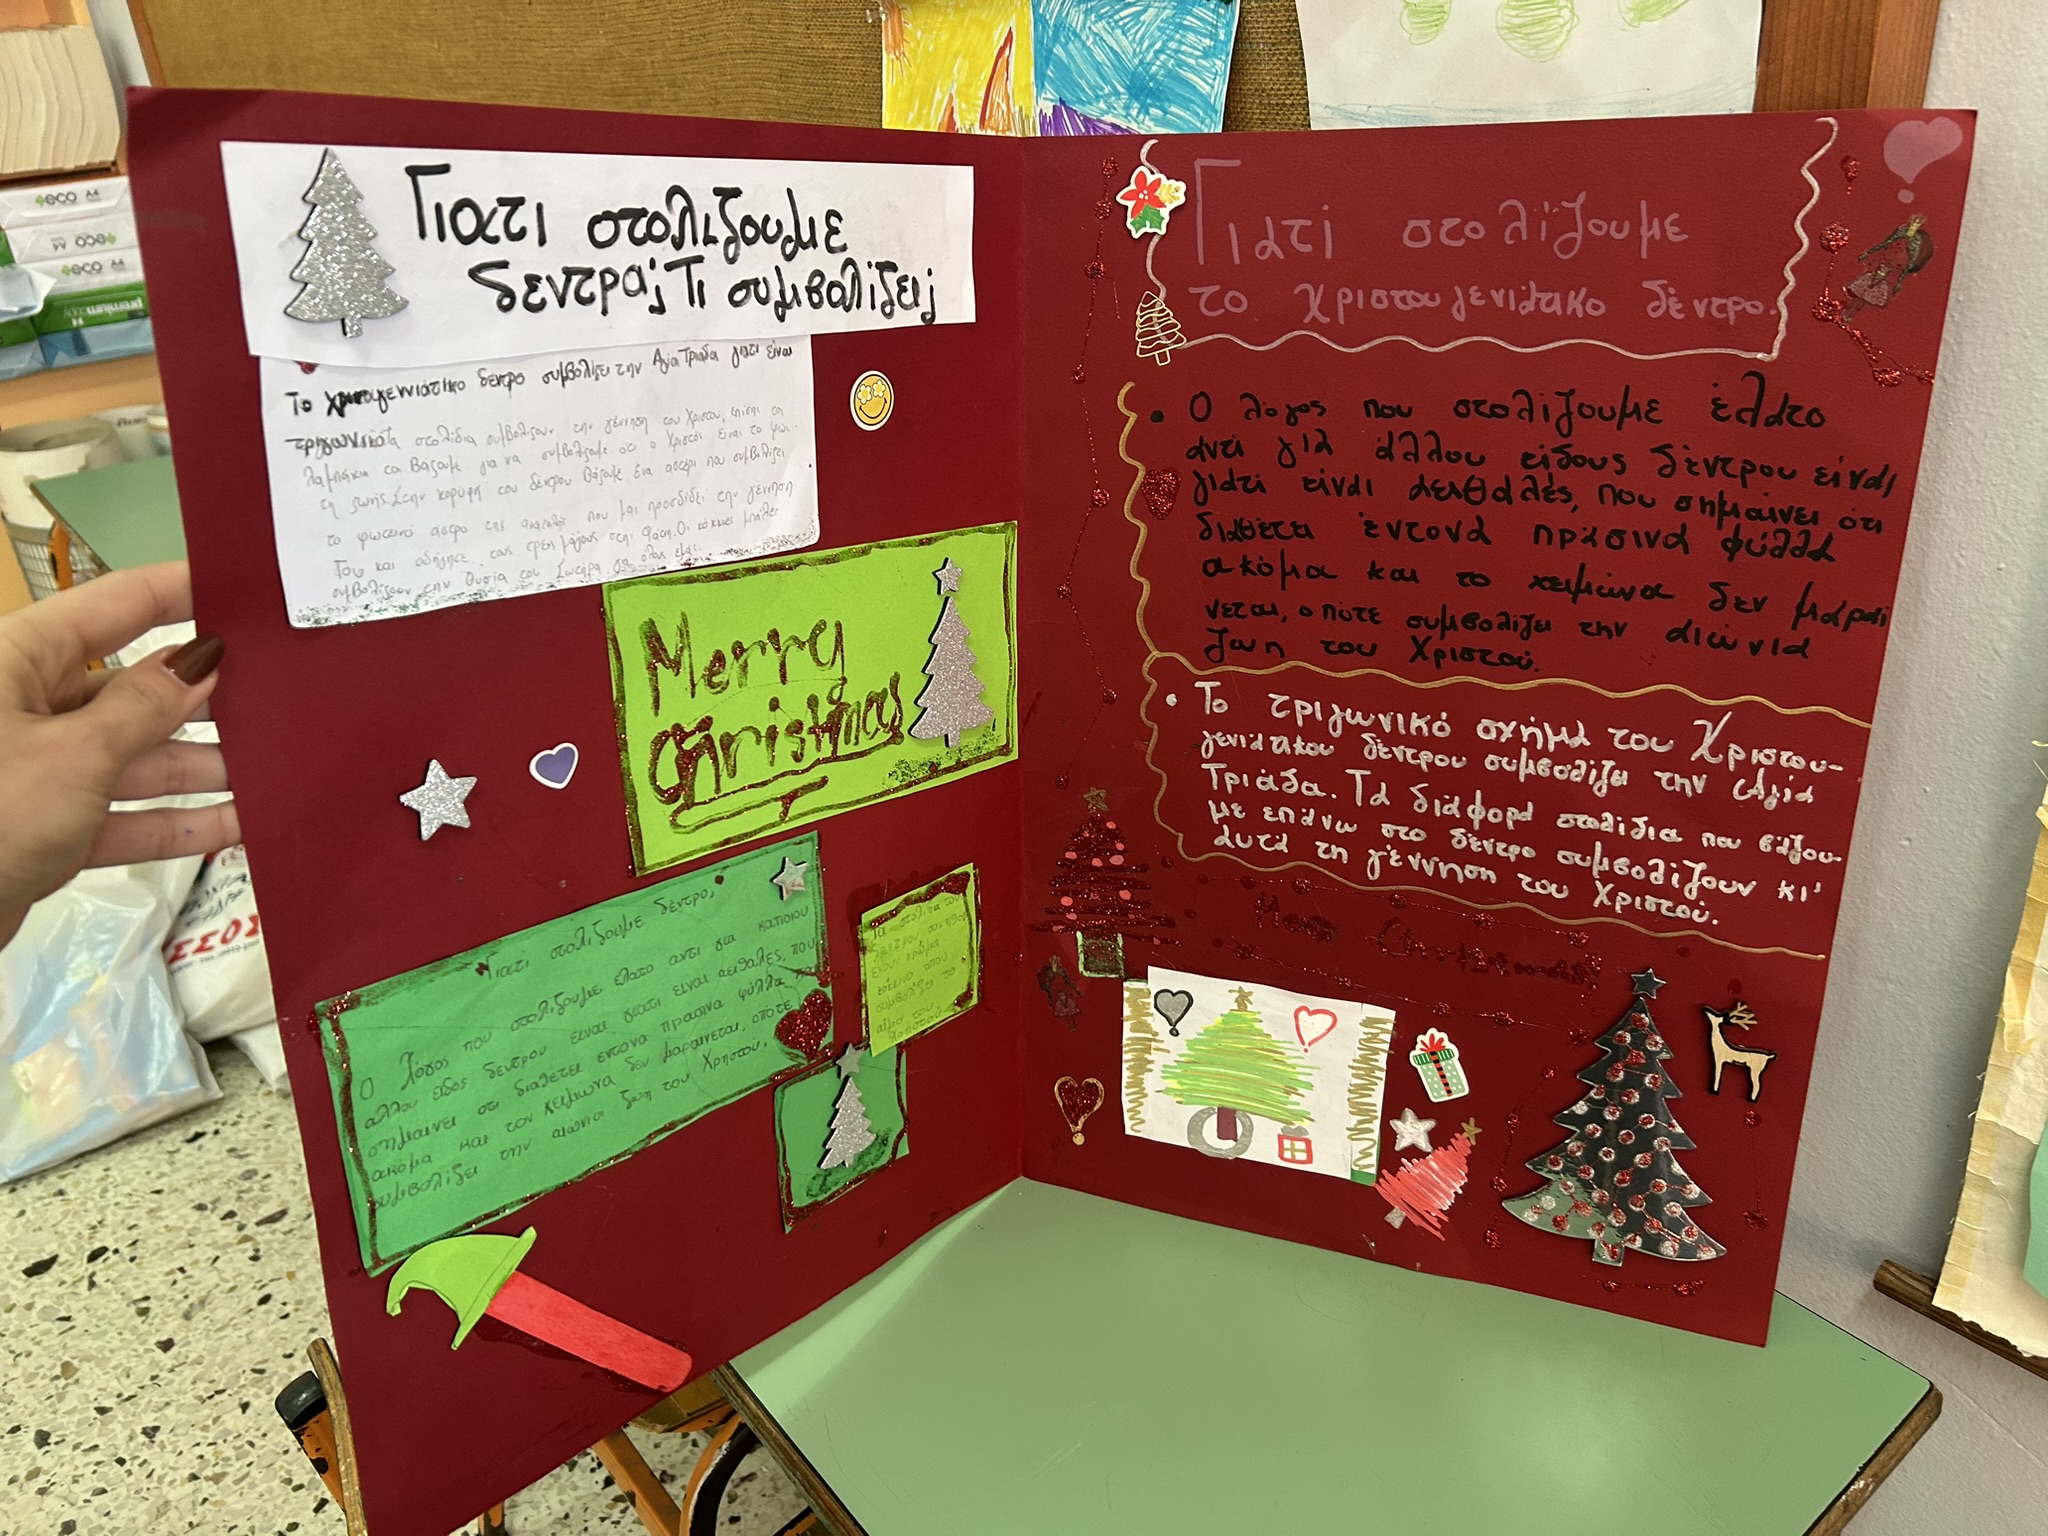 Γιατι στολιζουμε
δεντρα; Τι συμβολίζει;
Το χριστουγεννιάτικο δεντρο συμβολίζει την Αγία Τριάδα γιατί είναι
τριγωνικό Τα στολίδια συμβολίζουν την γέννηση του Χριστού, επίσης τα
λαμπάκια τα βάζουμε για να συμβολίζουμε ότι ο Χριστός είναι το φως
της ζωής. Στην κορυφή του δέντρου βάζουμε ένα αστέρι που συμβολίζει
το φωτεινό άστρο της ανατολής που μας προσδίδει την γέννηση
Του και οδήγησε τους τρεις μάγους στη Φάτνη. Οι κόκκινες μπάλες
συμβολίζουν την θυσία του Σωτήρα για όλους εμάς.
Merry
Christmas
Γιατι στολιζουμε δέντρο;
Ο λογος που στολιζουμε ελατο αντι για καποιου
αλλου ειδος δεντρου ειναι γιατι ειναι αειθαλες, που
σημαινει οτι διαθετει εντονα πρασινα φύλλα
ακόμα και τον χειμωνα δεν μαραινεται, οποτε
συμβολίζει την αιωνια ζωη του Χρηστου.
Τα στολίδια του
δεντρου συνήθως
έχουν χρώμα
Γιατί στολίζουμε
το χριστουγενιάτικο δέντρο.
• Ο λόγος που στολίζουμε έλατο
αντί για άλλου είδους δέντρου είναι
γιατί είναι αειθαλές, που σημαίνει ότι
διαθέτει έντονα πράσινα φύλλα
ακόμα και το χειμώνα δεν μαραί
νεται, οπότε συμβολίζει την αιώνια
ζωη του Χριστού.
• Το τριγωνικό σχήμα του Χριστου-
γενιάτικου δέντρου συμβολίζει την Αγία
Τριάδα. Τα διάφορα στολίδια που βάζου-
με επάνω στο δέντρο συμβολίζουν κι'
αυτά τη γέννηση του Χριστού.
Merry Christmas
eco A4
eco A4
eco A4
premium